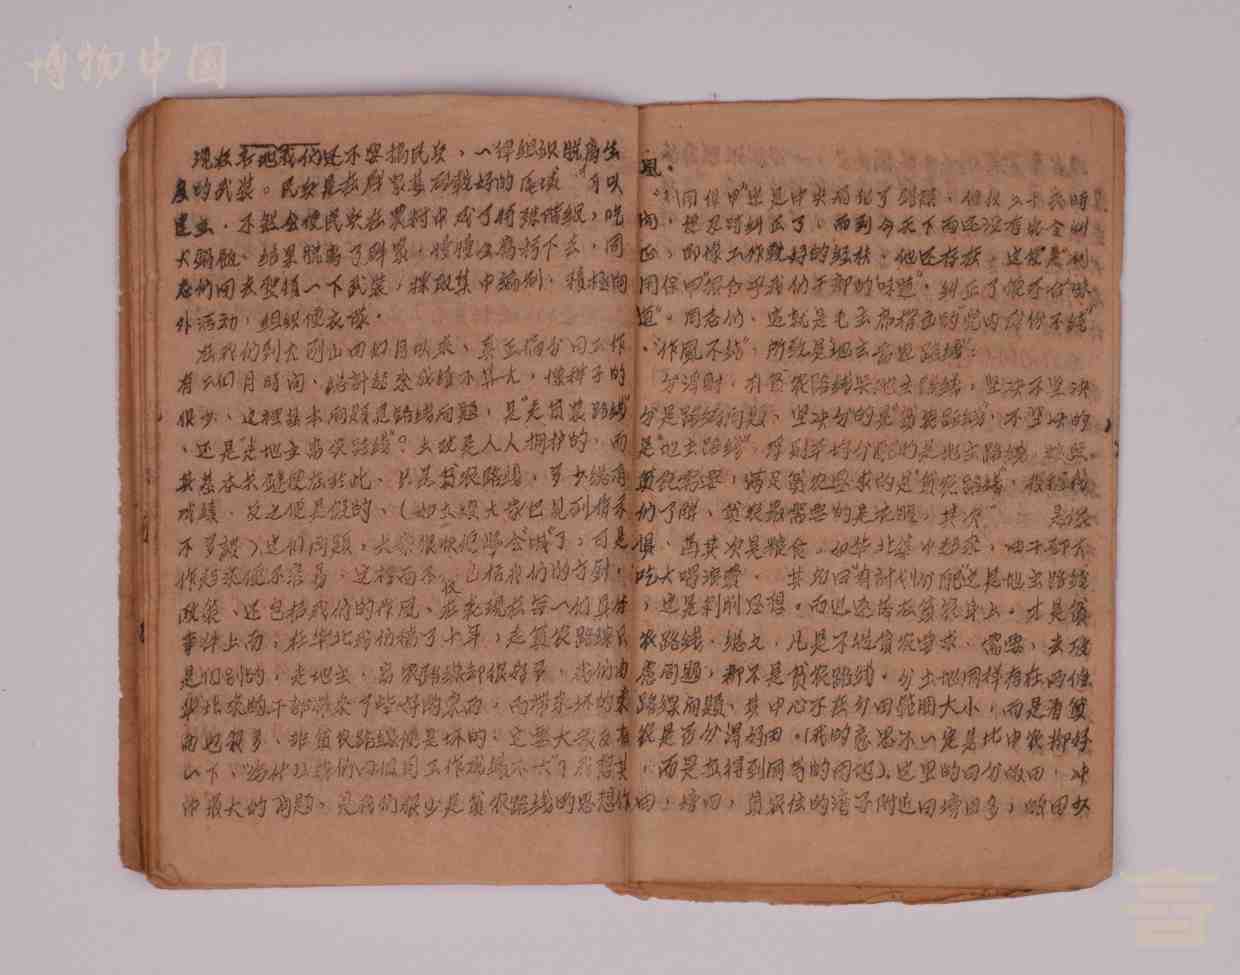 博物中国
现在各地我们还不要搞民兵，一律组织脱离生
产的武装。民兵是在群众基础较好的区域，可以
建立，不然会使民兵在农村中成了特殊阶级，吃
大锅饭，结果脱离了群众，慢慢会腐朽下去，同
志们回去整理一下武装，采取集中编制，积极向
外活动，组织便衣队。
在我们到大别山四个月以来，真正搞分田工作
有三个月时间，总计起来成绩不算大，像样子的
很少，这里基本问题是路线问题，是“走贫农路线”
，还是“走地主富农路线”？土改是人人拥护的，而
其基本关键便在于此，只走贫农路线，多少总有
成绩，反之便是假的、
不多谈）这个问题，大家很快便能会“喊”了，可是
作起来便不容易，这里面不 包括我们的方到，
政策、还包括我们的作风、
事件上面；在华北我们搞了十年，走贫农路线只
是个别的，走地主、富农路线却很好多，我们由
华北来的干部带来了些好的东西，而带来坏的东
西也很多，非贫农路线便是坏的，这要大家反省
一下，为什么我们四个月工作成绩不大？我想其
中最大的问题，是我们很少是贫农路线的思想作
风。
“利用保甲”还是中央局犯了错误，但在二十天时
间，想忍时纠正了，而到今天下面还没有完全纠
正，即像工作较好的经扶，他还存在，这便是“利
用保甲”很合乎我们干部的味道”，纠正了很不合“味
道”。同志们，这就是毛主席指出的党内“成份不纯”
，“作风不纯”，所致是地主富农路线”。
分浮财，有贫农路线与地主路线，坚决不坚决
分是路线问题，坚决分的是“贫农路线”，不坚决的
是“地主路线”，浮财平均分配的是地主路线，按照
贫农需要，满足贫农要求的是“贫农路线”，根据我
们了解，贫农最需要的是衣服，其次 是农
具，再其次是粮食，如华北集中起来，由干部大
吃大喝浪费， 其名曰“有计划分配”这是地主路线
；这是剥削思想。而迅速落在贫农身上，才是贫
农路线，总之，凡是不从贫农要求、需要，去考
虑问题，都不是贫农路线，分土地同样存在两个
路线问题，其中心不在分田范围大小，而是看贫
农是否分得好田。（我的意思不一定是比中农都好
，而是在得到同等的田地）。这里的田分畈田，冲
田，塝田，贫农住的湾子附近田塝田多，畈田少